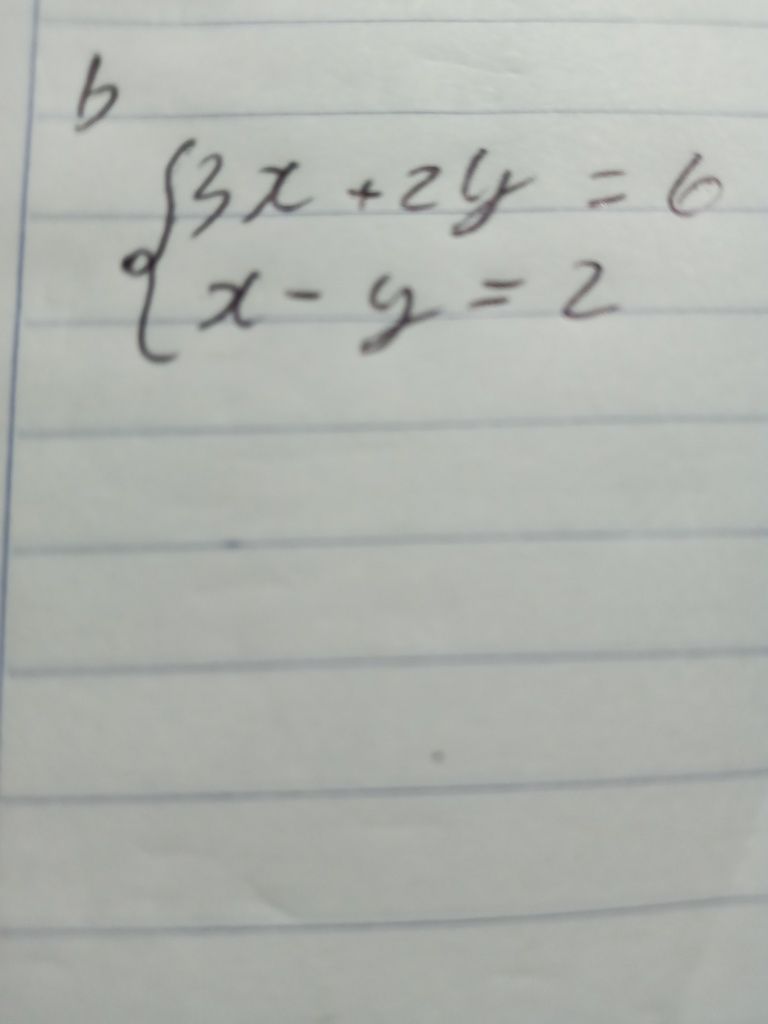 b
3x + 2y = 6
x - y = 2